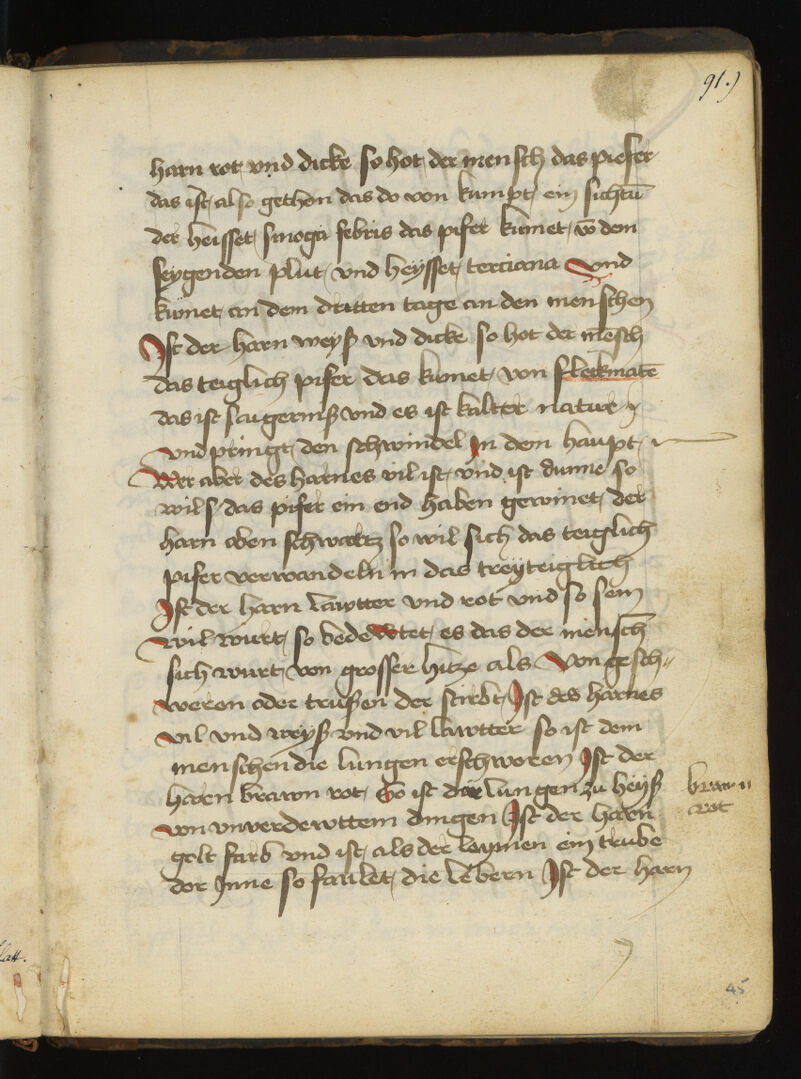 91.)
harn rot vnd dicke so hot der mensch das piefer
das ist also gethon das do von kumpt ein sichtū
der heisset sinoga febris das pifer kumet vō dem
seygenden plut vnd heysset terciana Vnd
kumet an dem dritten tage an den menschen
Ist der harn weyß vnd dicke so hot der mēsch
das teiglich pifer das kumet von fleckmatē
das ist saigermß vnd es ist kalter natur
vnd pringt den schwindel In dem haupt
Wer aber des harnes vil ist vnd ist dunne so
wil das pifer ein end haben gewinet der
harn oben schwartz so wil sich das teiglich
pifer verwandeln in das treyteiglich
Ist der harn lawtter vnd rot vnd so sein
wil wurt so bedewtet es das der mensch
sich wurt von grosser hitze als Von gesch⸗
weren oder trußen der stirbt Ist des harnes
vil vnd weyß vnd vil lawtter so ist dem
menschen die lungen erschworen Ist der
harn brawn rot So ist die lungen zu heyß
von vnverdewttem dingen Ist der harn
golt farb vnd ist als der leymen ein trube
dor Inne so faulet die lebern Ist der harn
brawn
rot
45